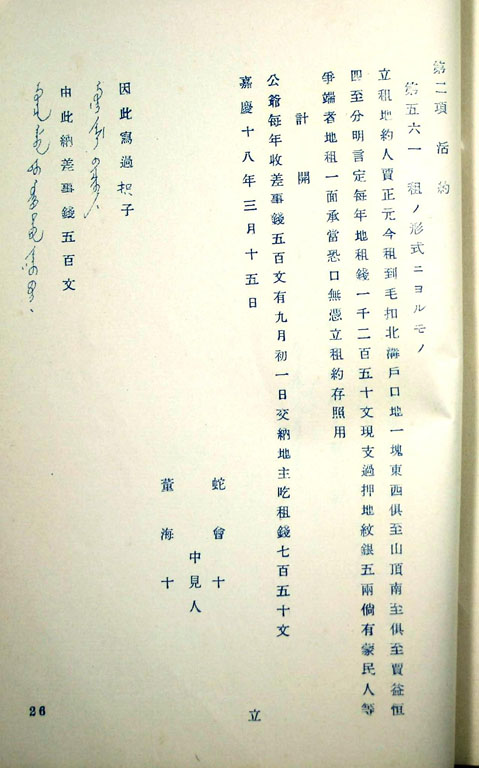 第二項 活約
第五六一 租ノ形式ニヨルモノ
立租地約人賈正元今租到毛扣北溝戶口地一塊東西俱至山頂南至俱至賈益恒
四至分明言定每年地租錢一千二百五十文現支過押地紋銀五兩倘有蒙民人等
爭端者地租一面承當恐口無憑立租約存照用
計開
公爺每年收差事錢五百文有九月初一日交納地主吃租錢七百五十文
嘉慶十八年三月十五日
蛇曾十
中見人
董海十
立
因此寫過 子
由此納差事錢五百文
26